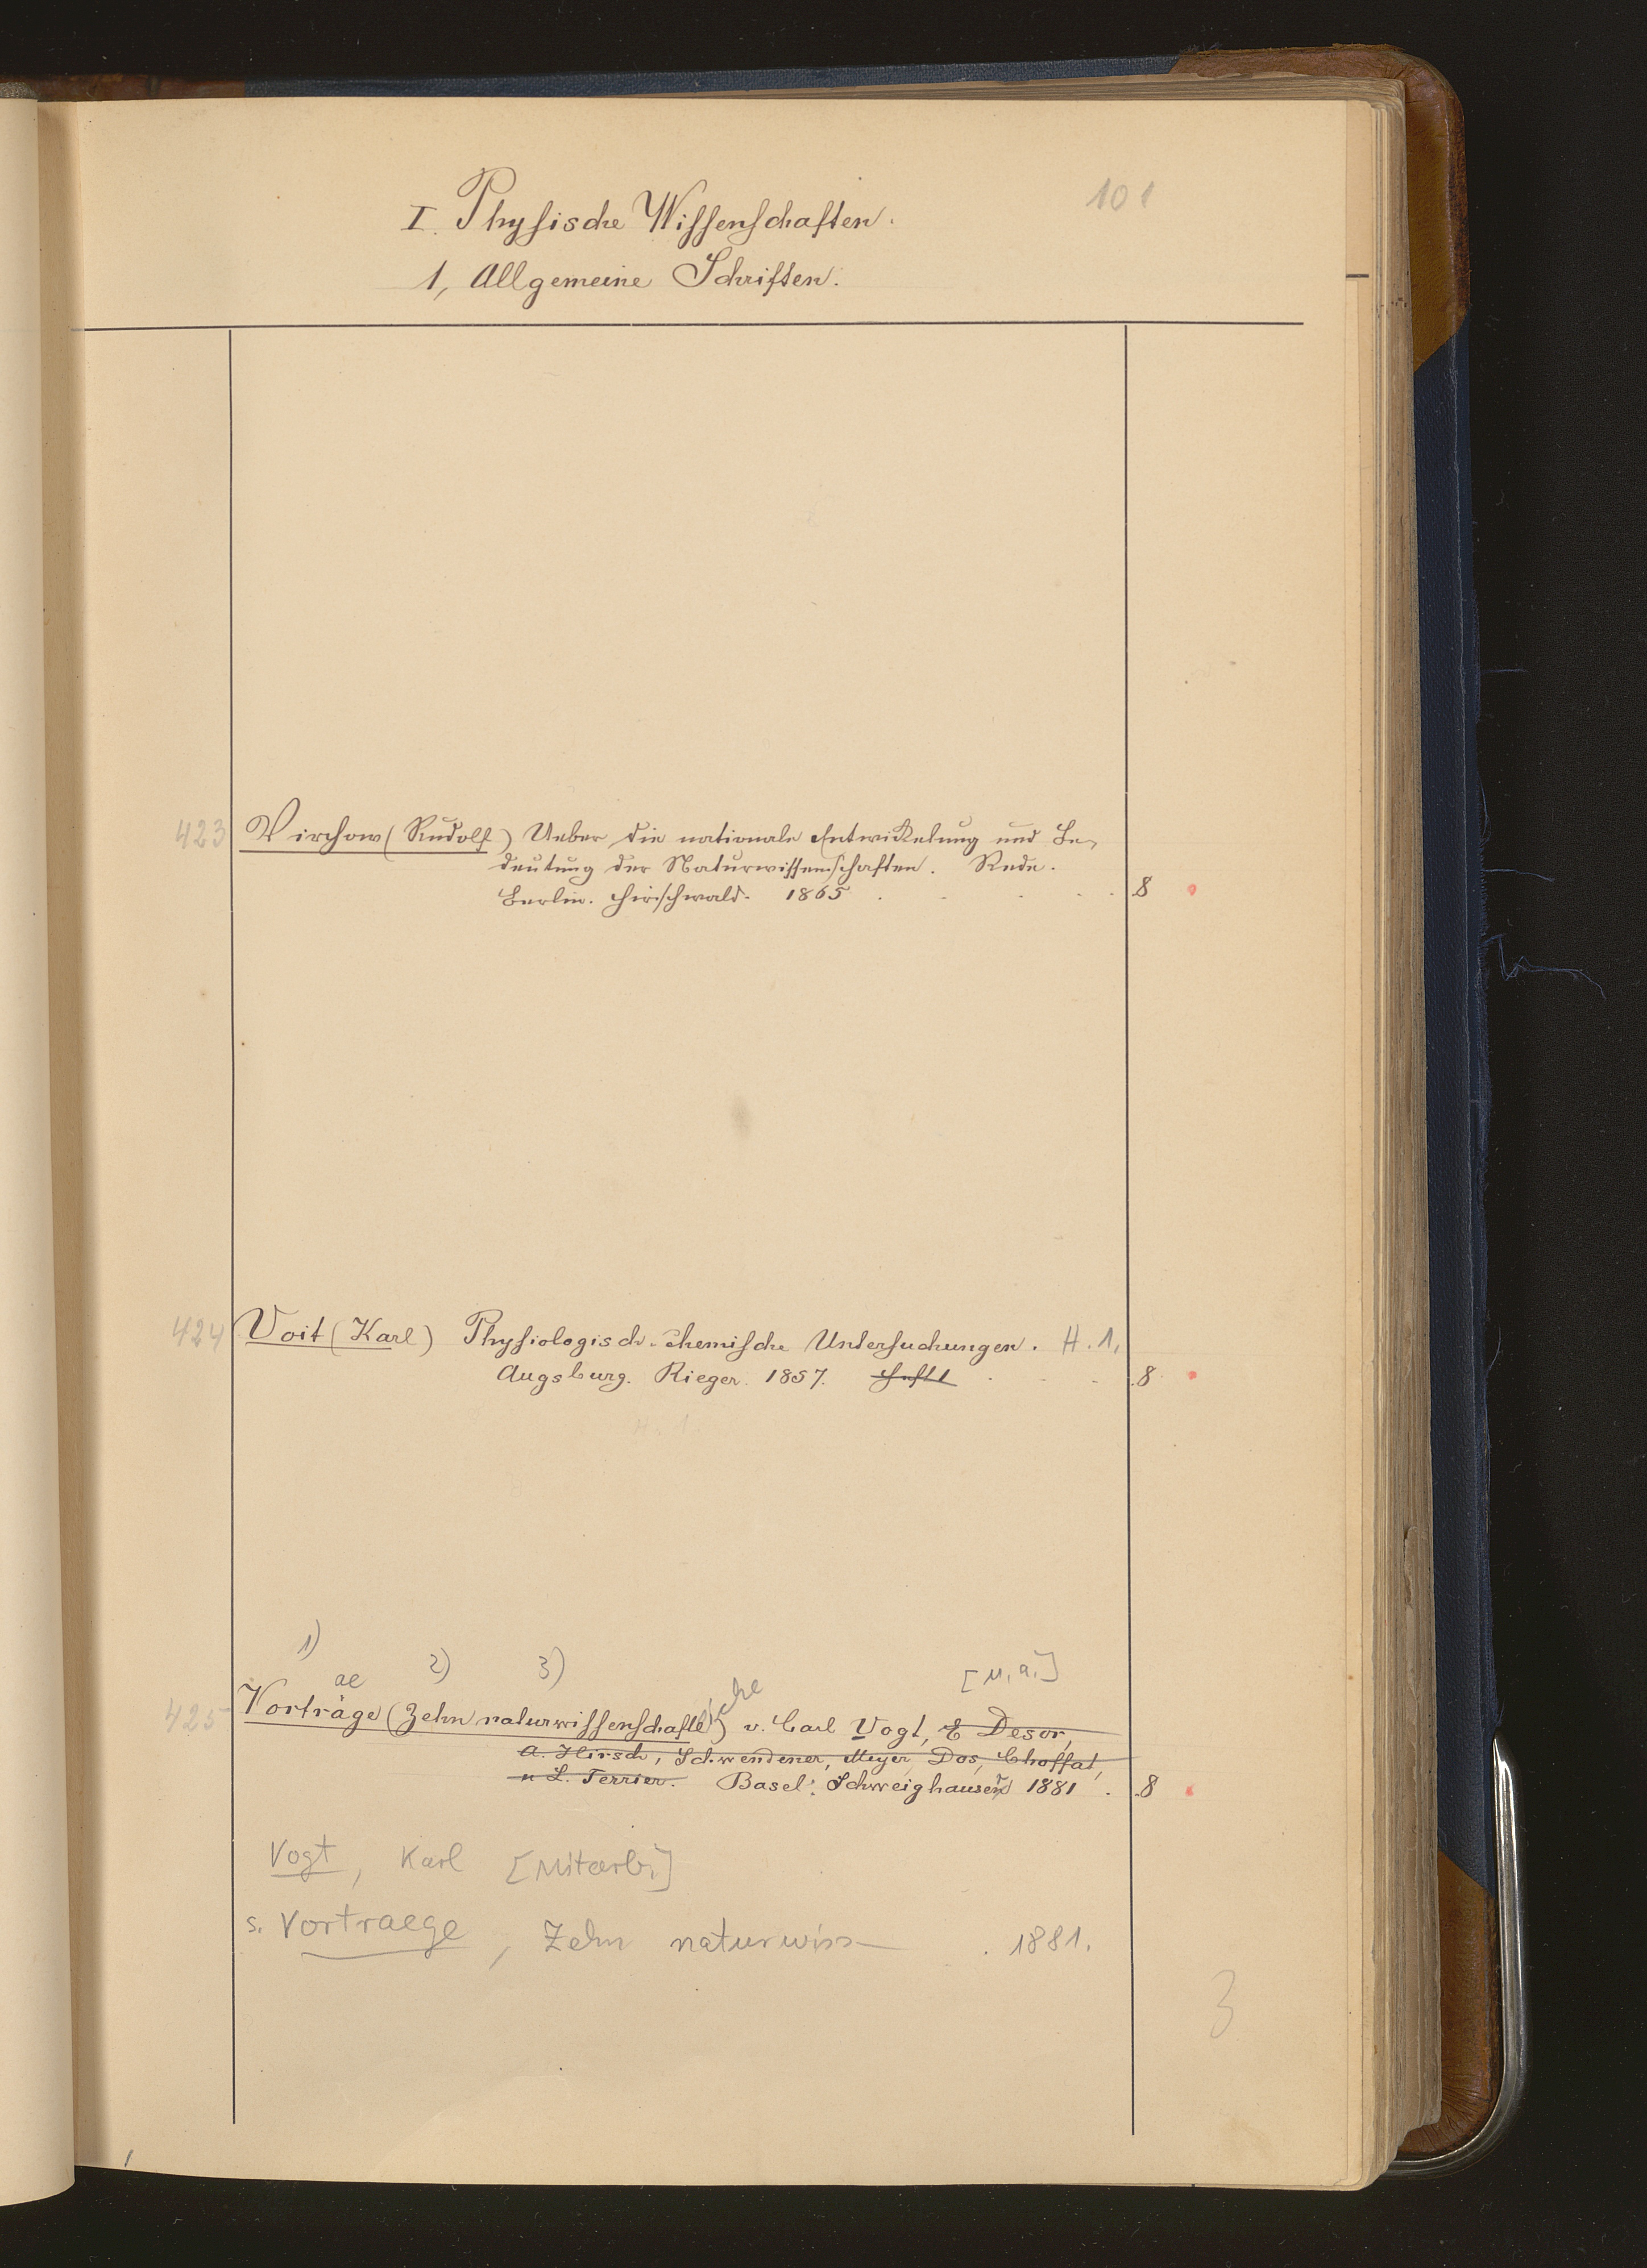 I. Physische Wissenschaften.
101
1, Allgemeine Schriften.
423 Virchow (Rudolf) Ueber die nationale Entwickelung und Be-
deutung der Naturwissenschaften. Rede.
Berlin. Hirschwald. 1865 . . . . 8
424 Voit (Karl) Physiologisch-chemische Untersuchungen. H. 1.
Augsburg. Rieger. 1857. Heft 1 . . . 8
1) ae 2) 3) [u. a.]
425 Vorträge (Zehn naturwissenschaftliche) v. Carl Vogt, E Desor,
A. Hirsch, Schwendener, Meyer, Dos, Choffat,
u L. Terrier. Basel: Schweighauser 1881 . 8
Vogt, Karl [Mitarb.]
s. Vortraege, Zehn naturwiss . 1881.
3